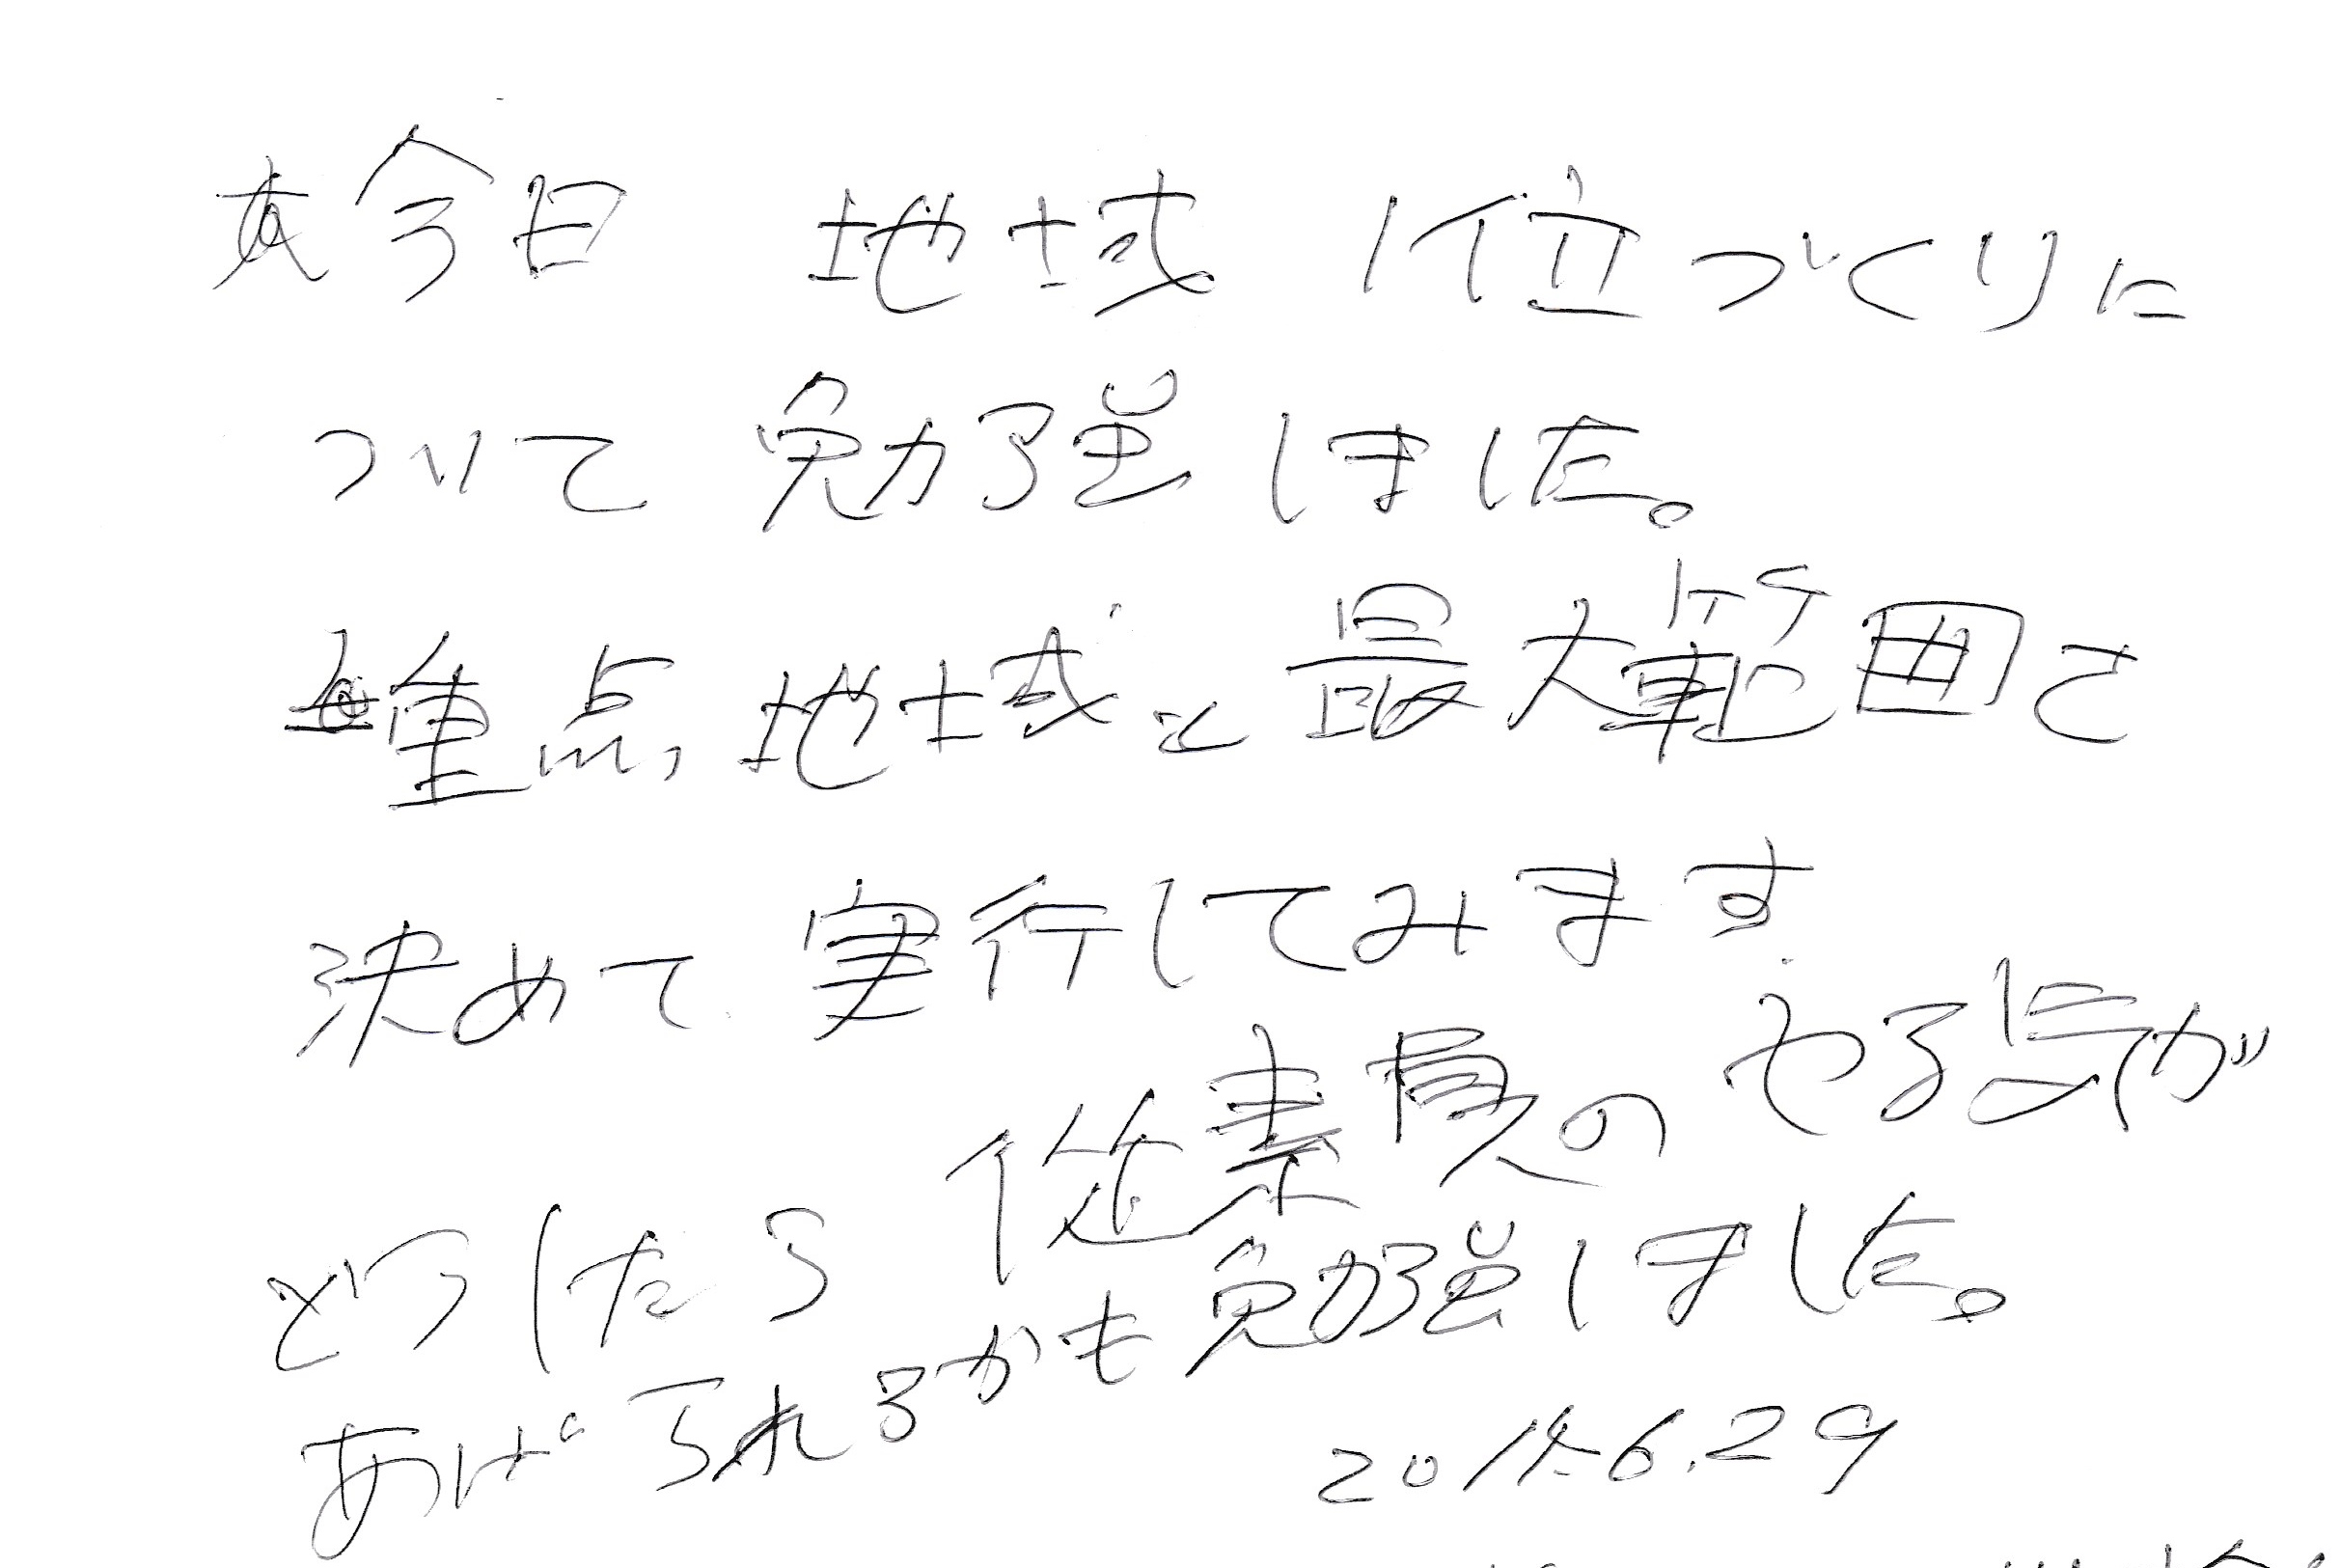 今日 地域 1位づくりに
ついて 勉強しました。
重点地域と最大範囲を
決めて 実行してみます
どうしたら 従業員の やる気が
あげられるかも勉強しました。
6.29